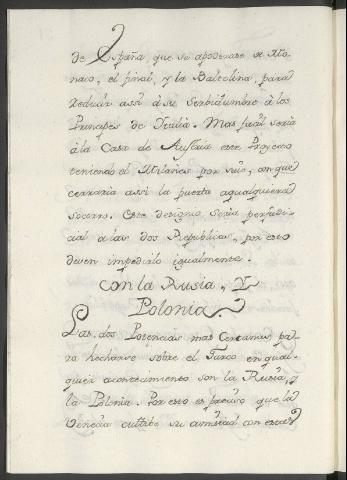 de España, que se apoderase de Mo-
naco, el final, y la Balcelina, para
reducir assi à su Serbidumbre à los
Principes de Italia. Mas facil seria
à la Casa de Austria este Proyecto
teniendo el Milanes por suio, con que
cerraria assi la puerta aqualquiera
socorro. Este designio seria perjudi-
cial a las dos Republicas, por esso
deven impedirlo igualmente.
Con la Rusia, y
Polonia
Las dos Potencias mas Cercanas pa-
ra hecharse sobre el Turco en qual-
quier acontecimiento son la Rusia, y
la Polonia. Por esso es preciso que la
Venecia cultibe su amistad con estas